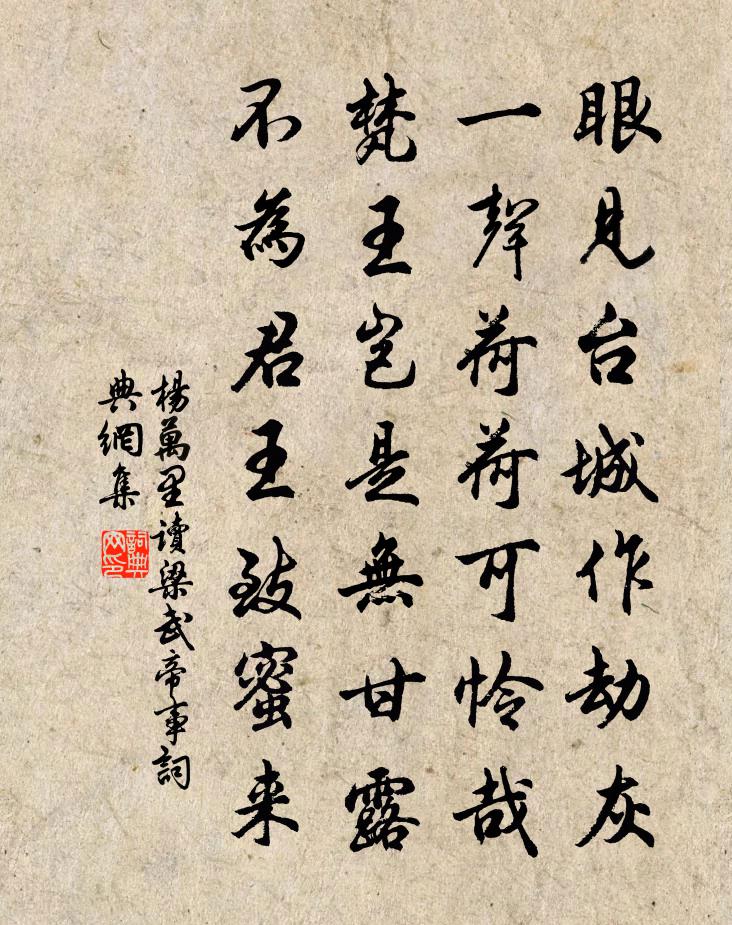 眼見台城作劫灰
一聲荷荷可怜哉
梵王岂是無甘露
不為君王致蜜来
楊萬里讀梁武帝事詞
典網集
詞典
网印